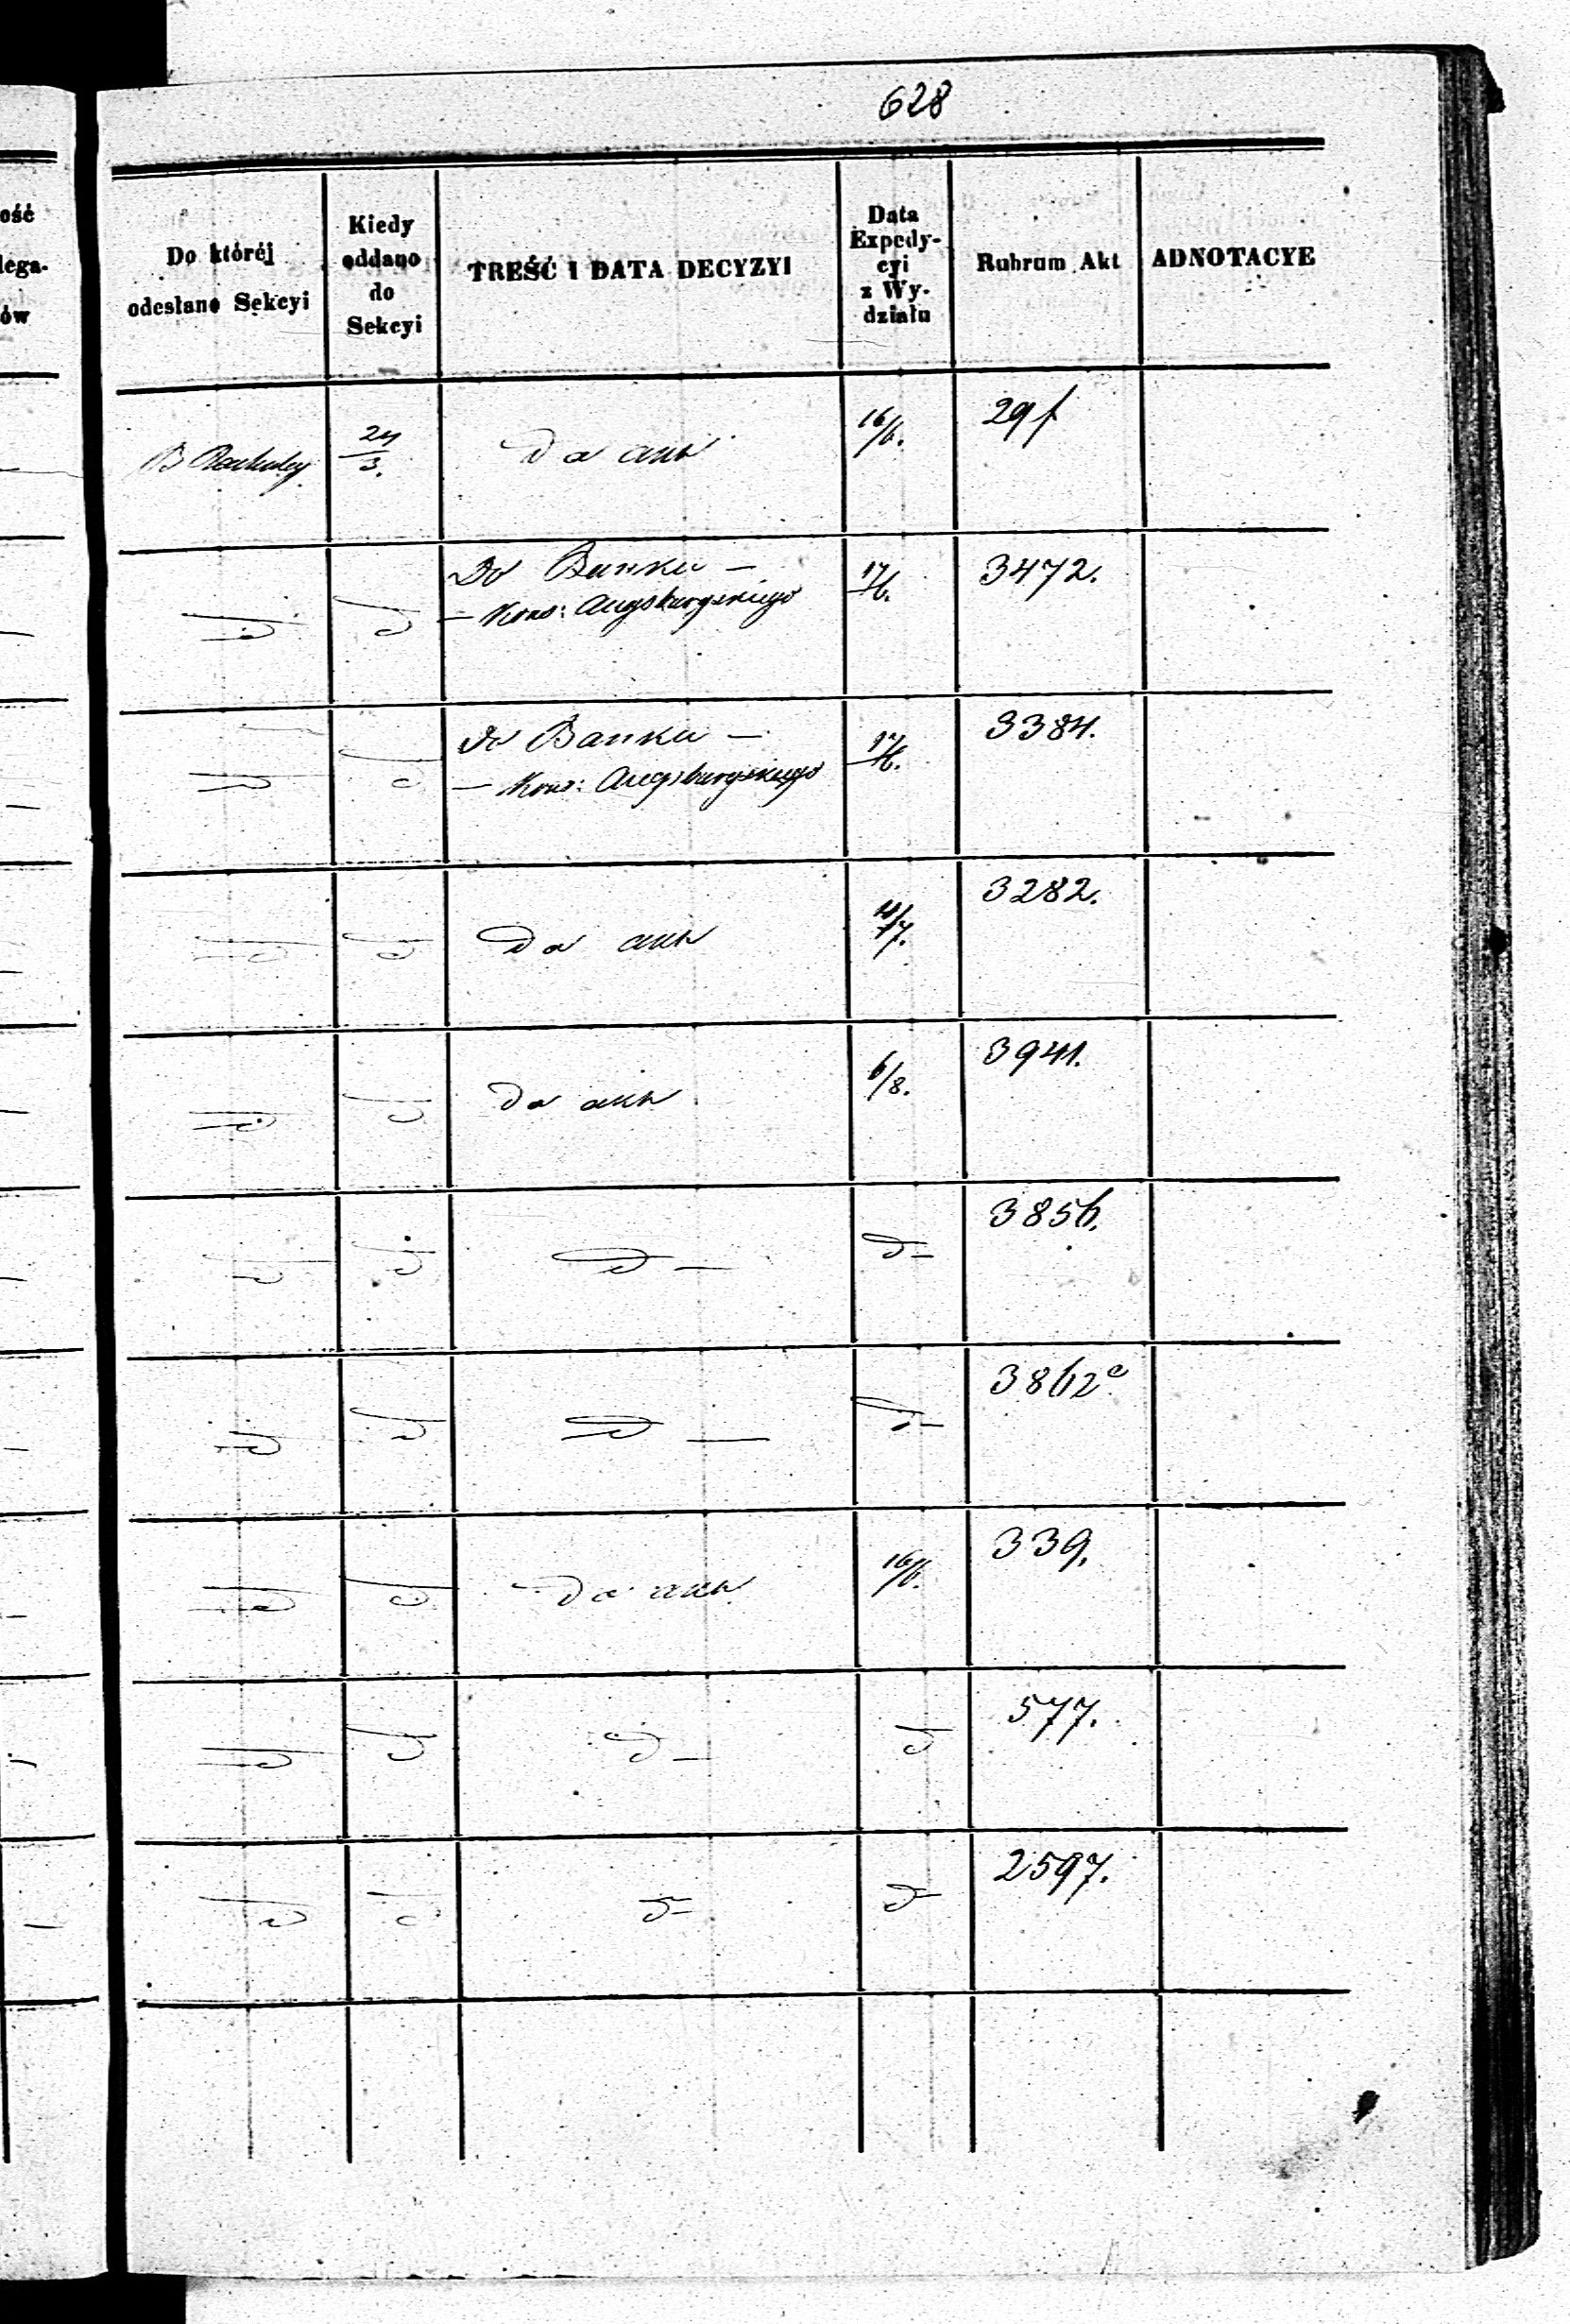 628
ość
lega-
ów
Do któréj
odesłano Sekcyi
Kiedy
oddano
do
Sekcyi
TREŚĆ I DATA DECYZYI
Data
Expedy-
cyi
z Wy-
działu
Rubrum Akt
ADNOTACYE
B 24/3. Do akt 16/6. 29f
Do Banku —
— Kons: Augsburgskiego 17/6. 3472.
Do Banku —
— Kons: Augsburgskiego 17/6. 3384.
Do akt 4/7. 3282.
Do akt 6/8. 3941.
d d d — d — 3856.
d d d — d — 3862c
d d Do akt 16/6. 339.
d d d — d 577.
d d d — d — 2597.